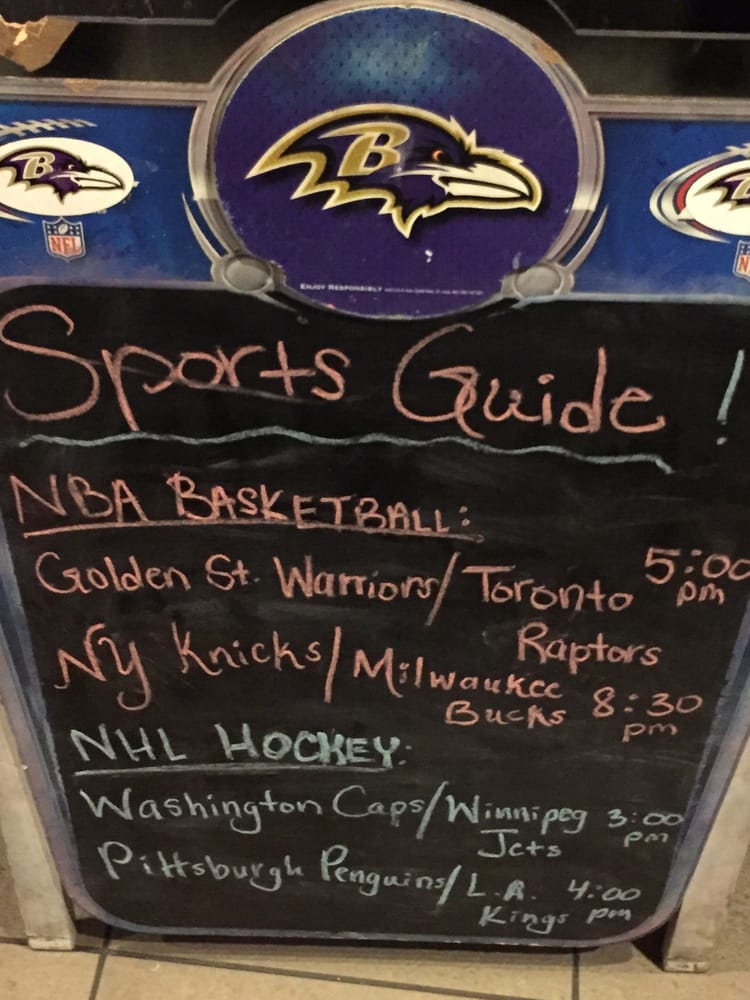 B
B
NFL
ENJOY RESPONSIBLY
Sports Guide!
NBA BASKETBALL:
Golden St. Warriors/Toronto 5:00
pm
Raptors
NY Knicks/Milwaukee 8:30
Bucks pm
NHL HOCKEY:
Washington Caps/Winnipeg 3:00
Jets pm
Pittsburgh Penguins/L.A. 4:00
Kings pm